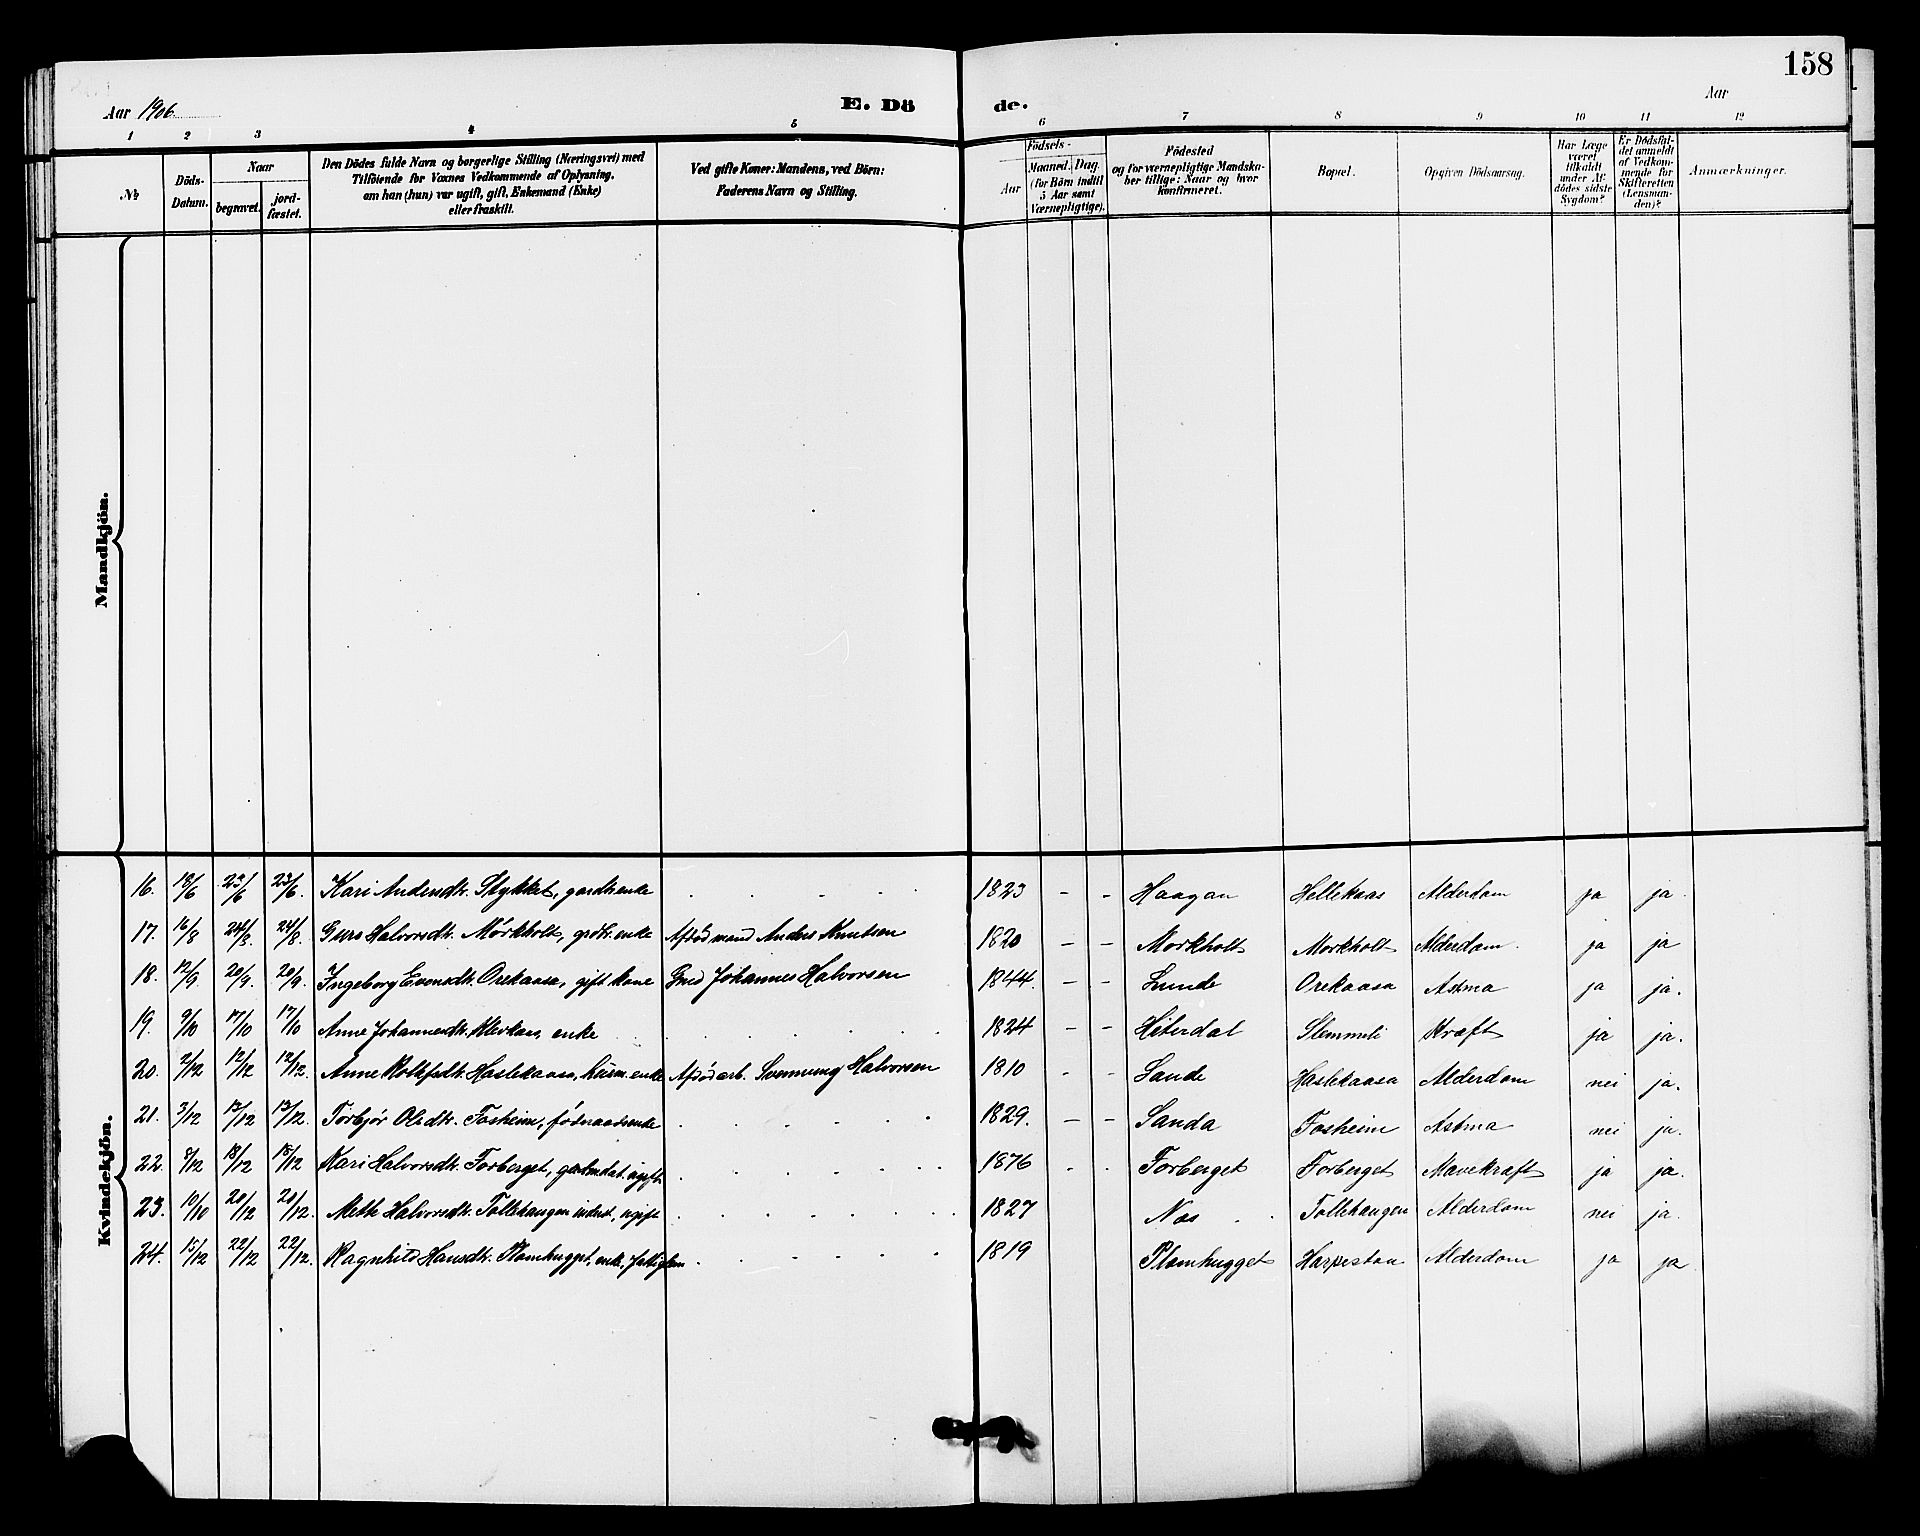 158
Aar 1906. E. Dö de. Aar
1 2 3 4 5 6 7 8 9 10 11 12
№ Döds-Datum. Naar begravet. jordfæstet. Den Dödes fulde Navn og borgerlige Stilling (Næringsvei) med Tilföiende for Voxnes Vedkommende af Oplysning, om han (hun) var ugift, gift, Enkemand (Enke) eller fraskilt. Ved gifte Koner: Mandens, ved Börn: Faderens Navn og Stilling. Födsels- Aar Maaned. Dag. (for Börn indtil 5 Aar samt Værnepligtige). Födested og for værnepligtige Mandskaber tillige: Naar og hvor konfirmeret. Bopæl. Opgiven Dödsaarsag. Har Læge været tilkaldt under Afdödes sidste Sygdom? Er Dödsfaldet anmeldt af Vedkommende for Skifteretten (Lensmanden)? Anmærkninger.
Mandkjön.
Kvindekjön.
16. 18/6 23/6 23/6. Kari Andersdtr. Stykket, gardbenke 1823 – – Haagan Hellekaas Alderdom ja ja.
17. 16/8 24/8. 24/8. Guro Halvorsdtr. Mørkholt, grdbr. enke Afdød mand Anders Knutsen 1820 – – Morkholt Morkholt Alderdom. ja ja
18. 12/9. 20/9. 20/9. Ingeborg Evensdtr. Orekaasa, gift kone Gmd Johannes Halvorsen 1844. – – Lunde Orekaasa Astma ja ja.
19. 9/10 17/10 17/10 Anne Johannesdtr. Klevkas, enke 1824 – – Hiterdal Slemmeli Kræft ja ja.
20. 2/12 12/12 12/12. Anne Rolfsdtr. Haslekaasa, husm. enke Afdød arb. Svennung Halvorsen 1810 - - Sande Haslekaasa Alderdom nei ja.
21. 3/12 13/12 13/12. Torbjør Olsdtr. Fosheim, födraadsenke 1829. – – Sanda Fosheim Astma nei ja.
22. 8/12 18/12 18/12 Kari Halvorsdtr. Forberget, ugift 1876 - - Forberget Forberget Mavekræft ja ja.
23. 10/10 20/12 20/12. Mette Halvorsdtr. Tollehaugen inderst, ugift 1827 Nas Tollehaugen Alderdom nei ja.
24. 15/12 22/12 22/12. Ragnhild Hansdtr. Plomhugget, enke, fattiglem 1819 Plomhugget Harpestou Alderdom ja ja.